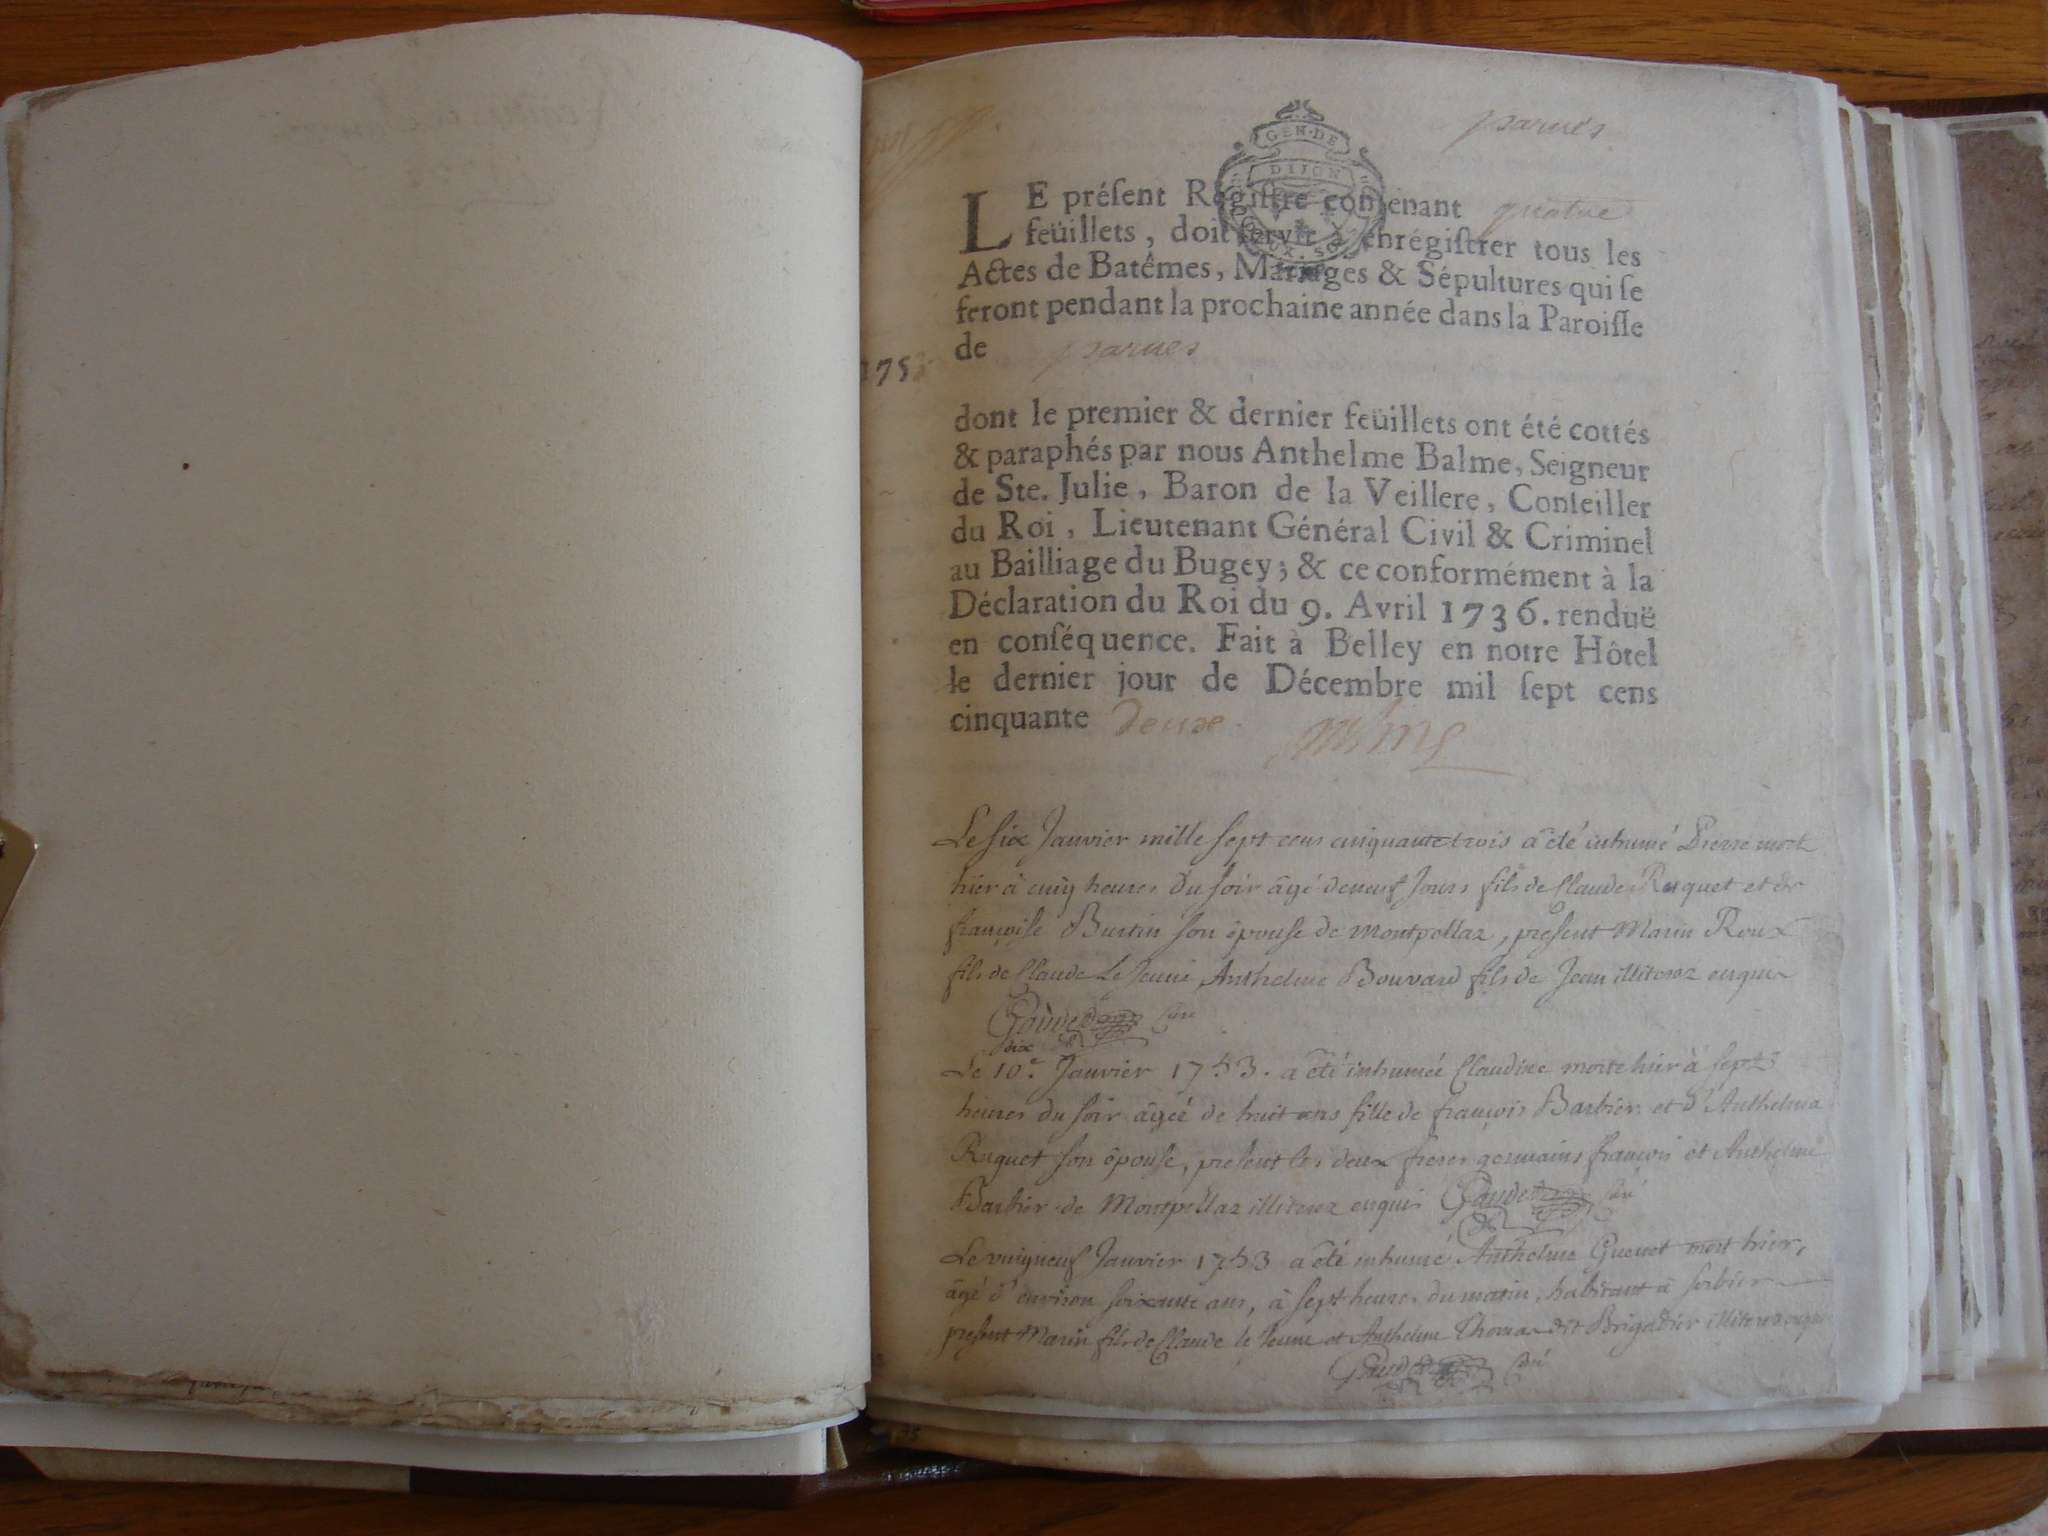 GEN. DE
DIJON
parves
LE préſent Regiſtre contenant quatre
feüillets, doit ſervir à enrégiſtrer tous les
Actes de Batêmes, Mariages & Sépultures qui ſe
feront pendant la prochaine année dans la Paroiſſe
de parves
1753
dont le premier & dernier feüillets ont été cottés
& paraphés par nous Anthelme Balme, Seigneur
de Ste. Julie, Baron de la Veillere, Conſeiller
du Roi, Lieutenant Général Civil & Criminel
au Bailliage du Bugey; & ce conformément à la
Déclaration du Roi du 9. Avril 1736. renduë
en conſéquence. Fait à Belley en notre Hôtel
le dernier jour de Décembre mil ſept cens
cinquante deuxe.
Le ſix Janvier mille ſept cens cinquante trois a été inhumé Pierre mort
hier à cinq heures du ſoir âgé de neuf jours fils de Claude Ruquet et de
françoiſe Burtin ſon épouſe de montpellaz, preſent Marin Roux
fils de Claude Le Jeune Anthelme Bouvard fils de Jean illiterez enquis
curé
dix
Le 10e. Janvier 1753. a été inhumée Claudine morte hier à ſept
heures du ſoir âgée de huit ans fille de françois Barbier et d'Anthelma
Ruquet ſon épouſe, preſent les deux freres germains françois et Anthelme
Barbier de Montpellaz illiterez enquis curé
Le vingneuf Janvier 1753 a été inhumé Anthelme Guenet mort hier,
âgé d'environ ſoixante ans, à ſept heures du matin, habitant à ſorbier
preſent Marin fils de Claude le Jeune et Anthelme Thomas dit Brigadier illiterez enquis
curé